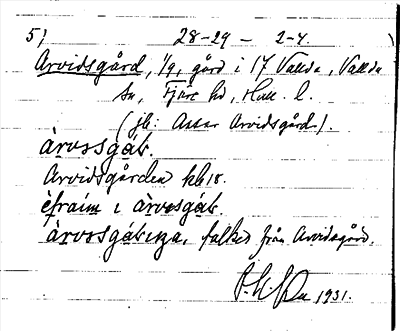 5) 28-29 – 2-4.
Arvidsgård, 1/9, gård i 17 Vallda, Vallda
sn, Fjäre hd, Hall. l.
(jfr: Assar Arvidsgård.).
àrvssgáb.
Arvidsgården kb 18.
èfraim i àrvssgáb.
àrvssgábıŋa, folket från Arvidsgård.
1931.